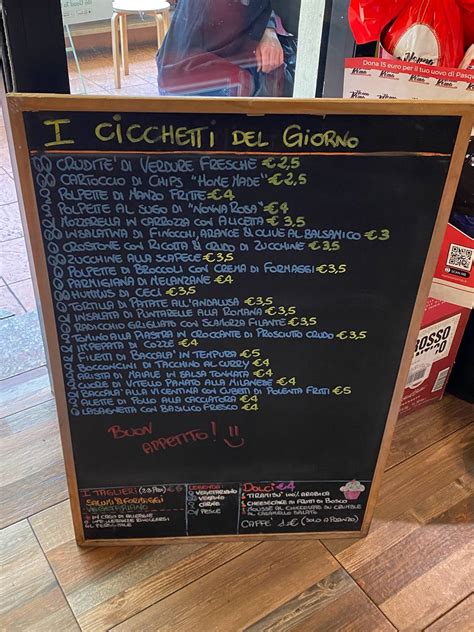 Dona 15 euro per il tuo uovo di Pasqua
I CICCHETTI DEL GIORNO
CRUDITE' DI VERDURE FRESCHE €2,5
CARTOCCIO DI CHIPS "HOME MADE" €2,5
POLPETTE DI MANZO FRITTE €4
POLPETTE AL SUGO DI "NONNA ROSA" €4
MOZZARELLA IN CARROZZA CON ALICETTA €3,5
INSALATINA DI FINOCCHI, ARANCE & OLIVE AL BALSAMICO €3
CROSTONE CON RICOTTA & CRUDO DI ZUCCHINE €3,5
ZUCCHINE ALLA SCAPECE €3,5
POLPETTE DI BROCCOLI CON CREMA DI FORMAGGI €3,5
PARMIGIANA DI MELANZANE €4
HUMMUS DI CECI €3,5
TORTILLA DI PATATE ALL'ANDALUSA €3,5
INSALATA DI PUNTARELLE ALLA ROMANA €3,5
RADICCHIO GRIGLIATO CON SCAMORZA FILANTE €3,5
TOMINO ALLA PIASTRA IN CROCCANTE DI PROSCIUTTO CRUDO €3,5
IMPEPATA DI COZZE €4
FILETTI DI BACCALA' IN TEMPURA €5
BOCCONCINI DI TACCHINO AL CURRY €4
ARISTA DI MAIALE IN SALSA TONNATA €4
CUORE DI VITELLO PANATO ALLA MILANESE €4
BACCALA' ALLA VICENTINA CON CUBETTI DI POLENTA FRITTI €5
ALETTE DI POLLO ALLA CACCIATORA €4
LASAGNETTA CON BASILICO FRESCO €4
BUON
APPETITO!
I TAGLIERI
SALUMI & FORMAGGI
VEGETARIANO
IN CASO DI ALLERGIE
O INTOLLERANZE RIVOLGERSI
AL PERSONALE
LEGENDA
VEGETARIANO
VEGANO
CARNE
PESCE
DOLCI €4
TIRAMISU' 100% ARABICA
CHEESECAKE AI FRUTTI DI BOSCO
MOUSSE AL CIOCCOLATO SU CRUMBLE
AL CARAMELLO SALATO
CAFFE' 1€ (SOLO A PRANZO)
ROSSO